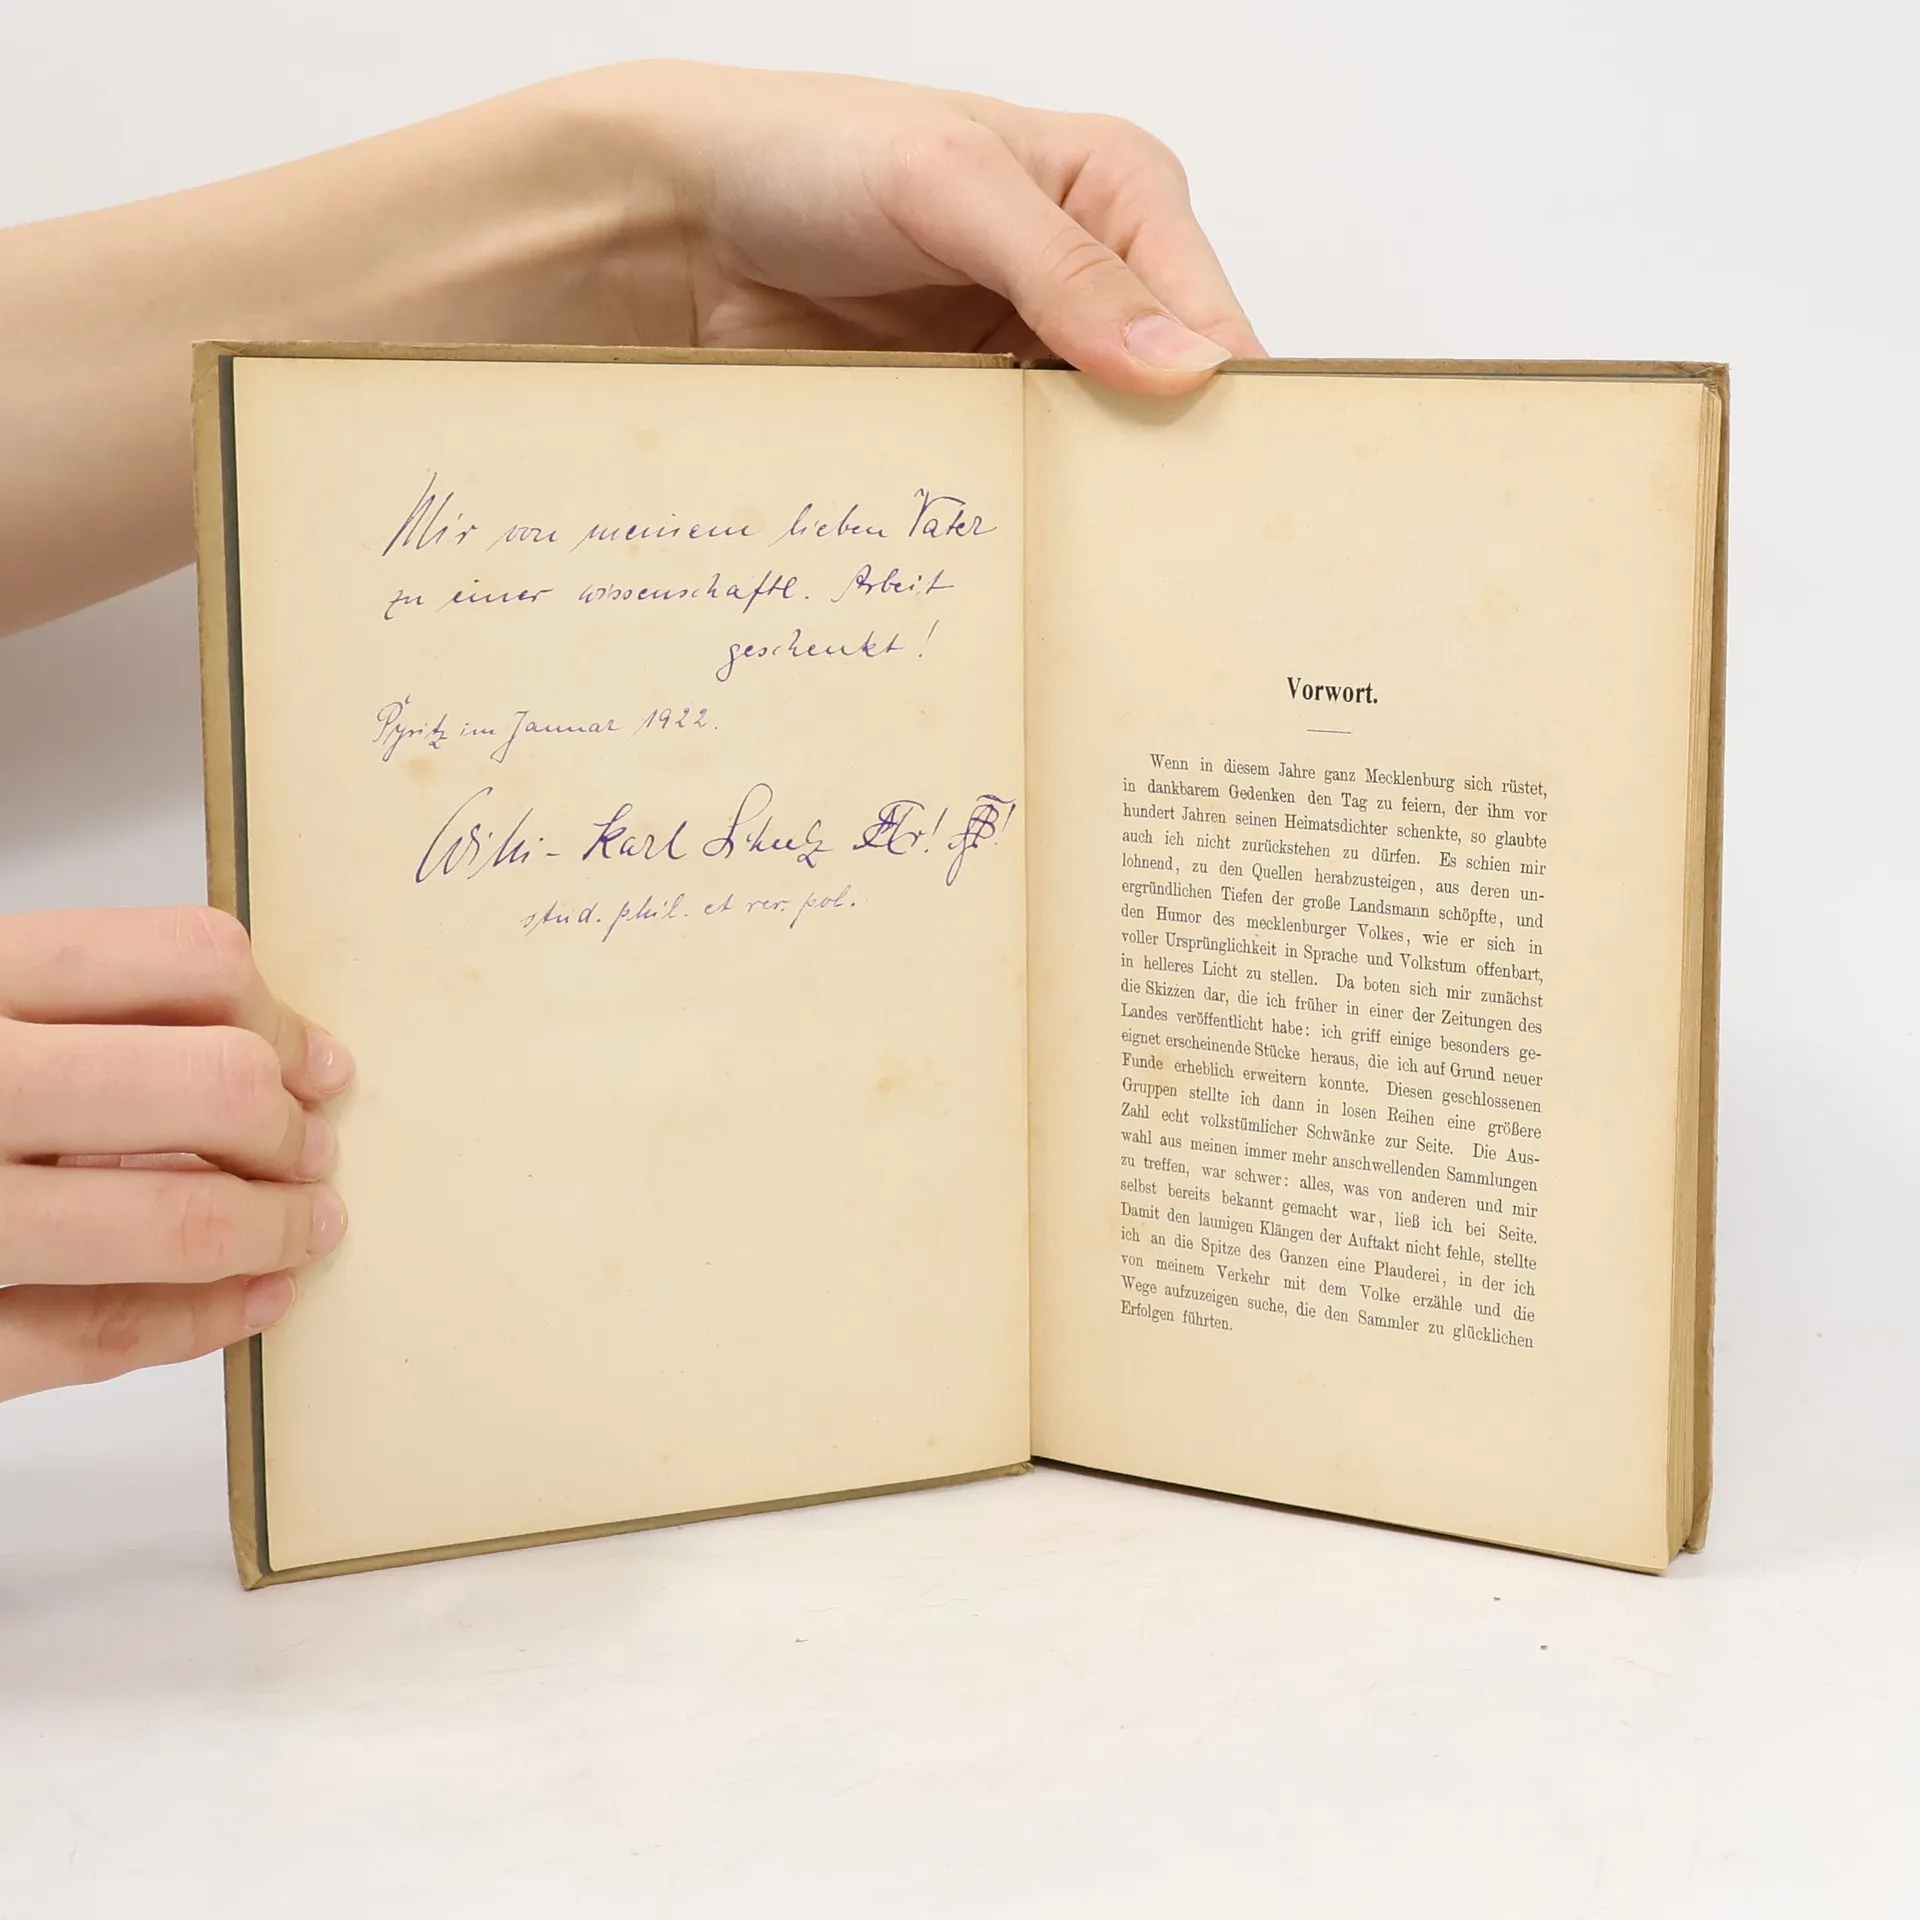 Mir von meinem lieben Vater
zu einer wissenschaftl. Arbeit
geschenkt!
Pyritz im Januar 1922.
Willi-Karl Schulz
stud. phil. et rer. pol.
Vorwort.
Wenn in diesem Jahre ganz Mecklenburg sich rüstet,
in dankbarem Gedenken den Tag zu feiern, der ihm vor
hundert Jahren seinen Heimatsdichter schenkte, so glaubte
auch ich nicht zurückstehen zu dürfen. Es schien mir
lohnend, zu den Quellen herabzusteigen, aus deren un-
ergründlichen Tiefen der große Landsmann schöpfte, und
den Humor des mecklenburger Volkes, wie er sich in
voller Ursprünglichkeit in Sprache und Volkstum offenbart,
in helleres Licht zu stellen. Da boten sich mir zunächst
die Skizzen dar, die ich früher in einer der Zeitungen des
Landes veröffentlicht habe: ich griff einige besonders ge-
eignet erscheinende Stücke heraus, die ich auf Grund neuer
Funde erheblich erweitern konnte. Diesen geschlossenen
Gruppen stellte ich dann in losen Reihen eine größere
Zahl echt volkstümlicher Schwänke zur Seite. Die Aus-
wahl aus meinen immer mehr anschwellenden Sammlungen
zu treffen, war schwer: alles, was von anderen und mir
selbst bereits bekannt gemacht war, ließ ich bei Seite.
Damit den launigen Klängen der Auftakt nicht fehle, stellte
ich an die Spitze des Ganzen eine Plauderei, in der ich
von meinem Verkehr mit dem Volke erzähle und die
Wege aufzuzeigen suche, die den Sammler zu glücklichen
Erfolgen führten.